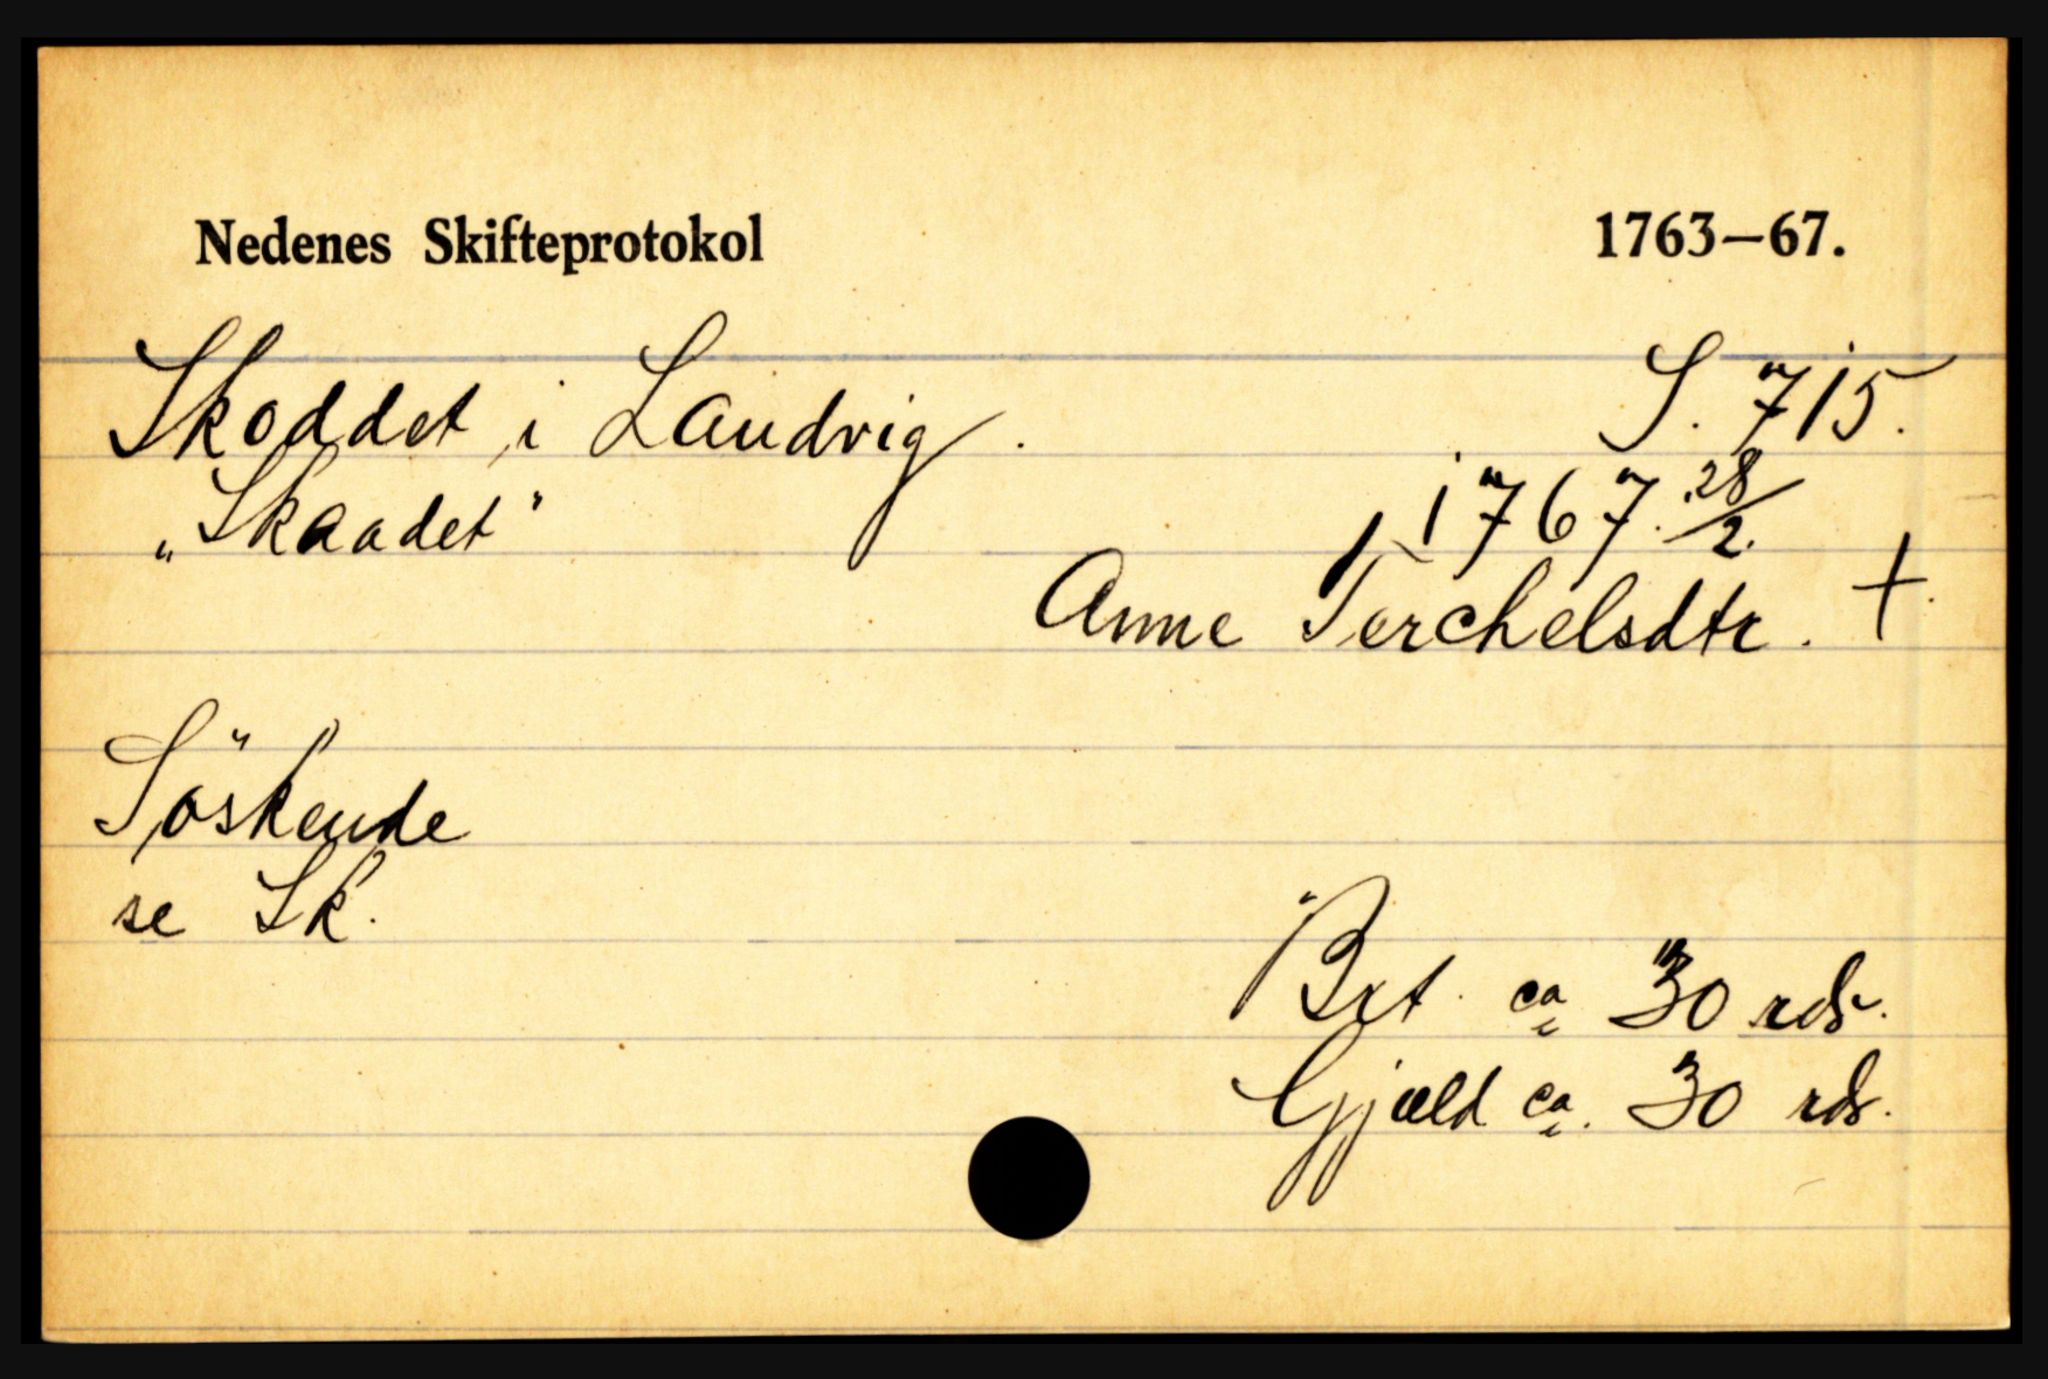 Nedenes Skifteprotokol 1763–67.
Skoddet i Landvig. S. 715.
„Skaadet" 1767. 28/2.
Anne Terchelsdtr. †.
Söskende
se Sk.
Brt. ca 30 rdr.
Gjæld ca. 30 rdr.